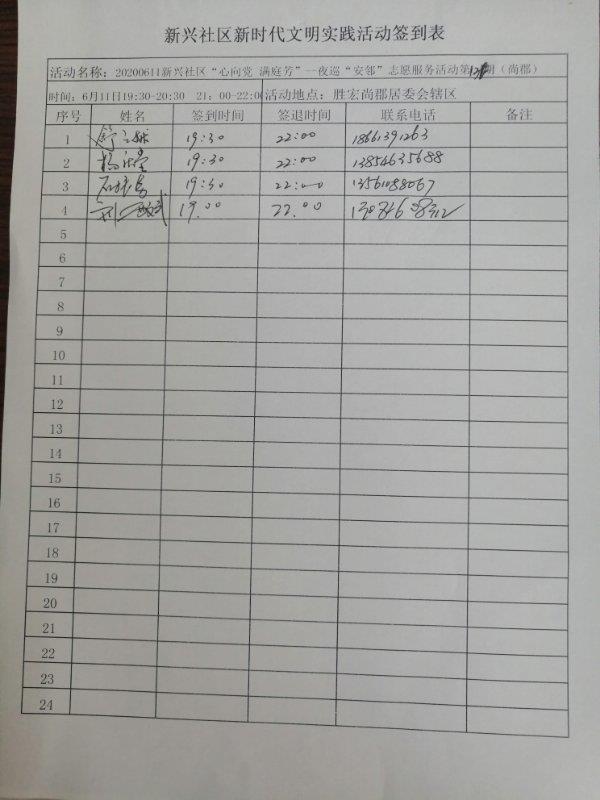 新兴社区新时代文明实践活动签到表
活动名称：20200611新兴社区“心向党 满庭芳”一夜巡“安邻”志愿服务活动第 期（尚郡）
时间：6月11日19:30-20:30 21：00-22:00 活动地点：胜宏尚郡居委会辖区
序号 姓名 签到时间 签退时间 联系电话 备注
1 19:30 22:00 18661391263
2 19:30 22:00 13854635688
3 19:30 22:00 13561088067
4 19.00 22.00
5
6
7
8
9
10
11
12
13
14
15
16
17
18
19
20
21
22
23
24